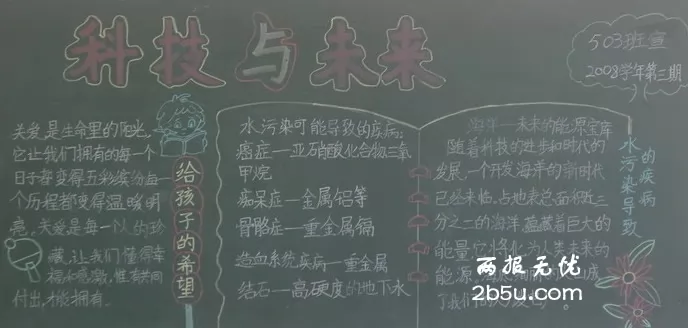 科技与未来
503班宣
2008学年第三期
关爱,是生命里的阳光,
它让我们拥有的每一个
日子都变得五彩缤纷每一
个历程都变得温暖明
亮。关爱是每一个人的珍
藏,让我们懂得幸
福和感激,惟有共同
付出,才能拥有.
给孩子的希望
水污染可能导致的疾病:
癌症—亚硝酸化合物三氯
甲烷
痴呆症—金属铝等
骨骼症—重金属镉
造血系统疾病—重金属
结石—高硬度的地下水
海洋—未来的能源宝库
随着科技的进步和时代的
发展,一个开发海洋的新时代
已经来临,占地表总面积近三
分之二的海洋,蕴藏着巨大的
能量,它将化为人类未来的
能源
了我们
水污染导致的疾病
两报无忧
2b5u.com